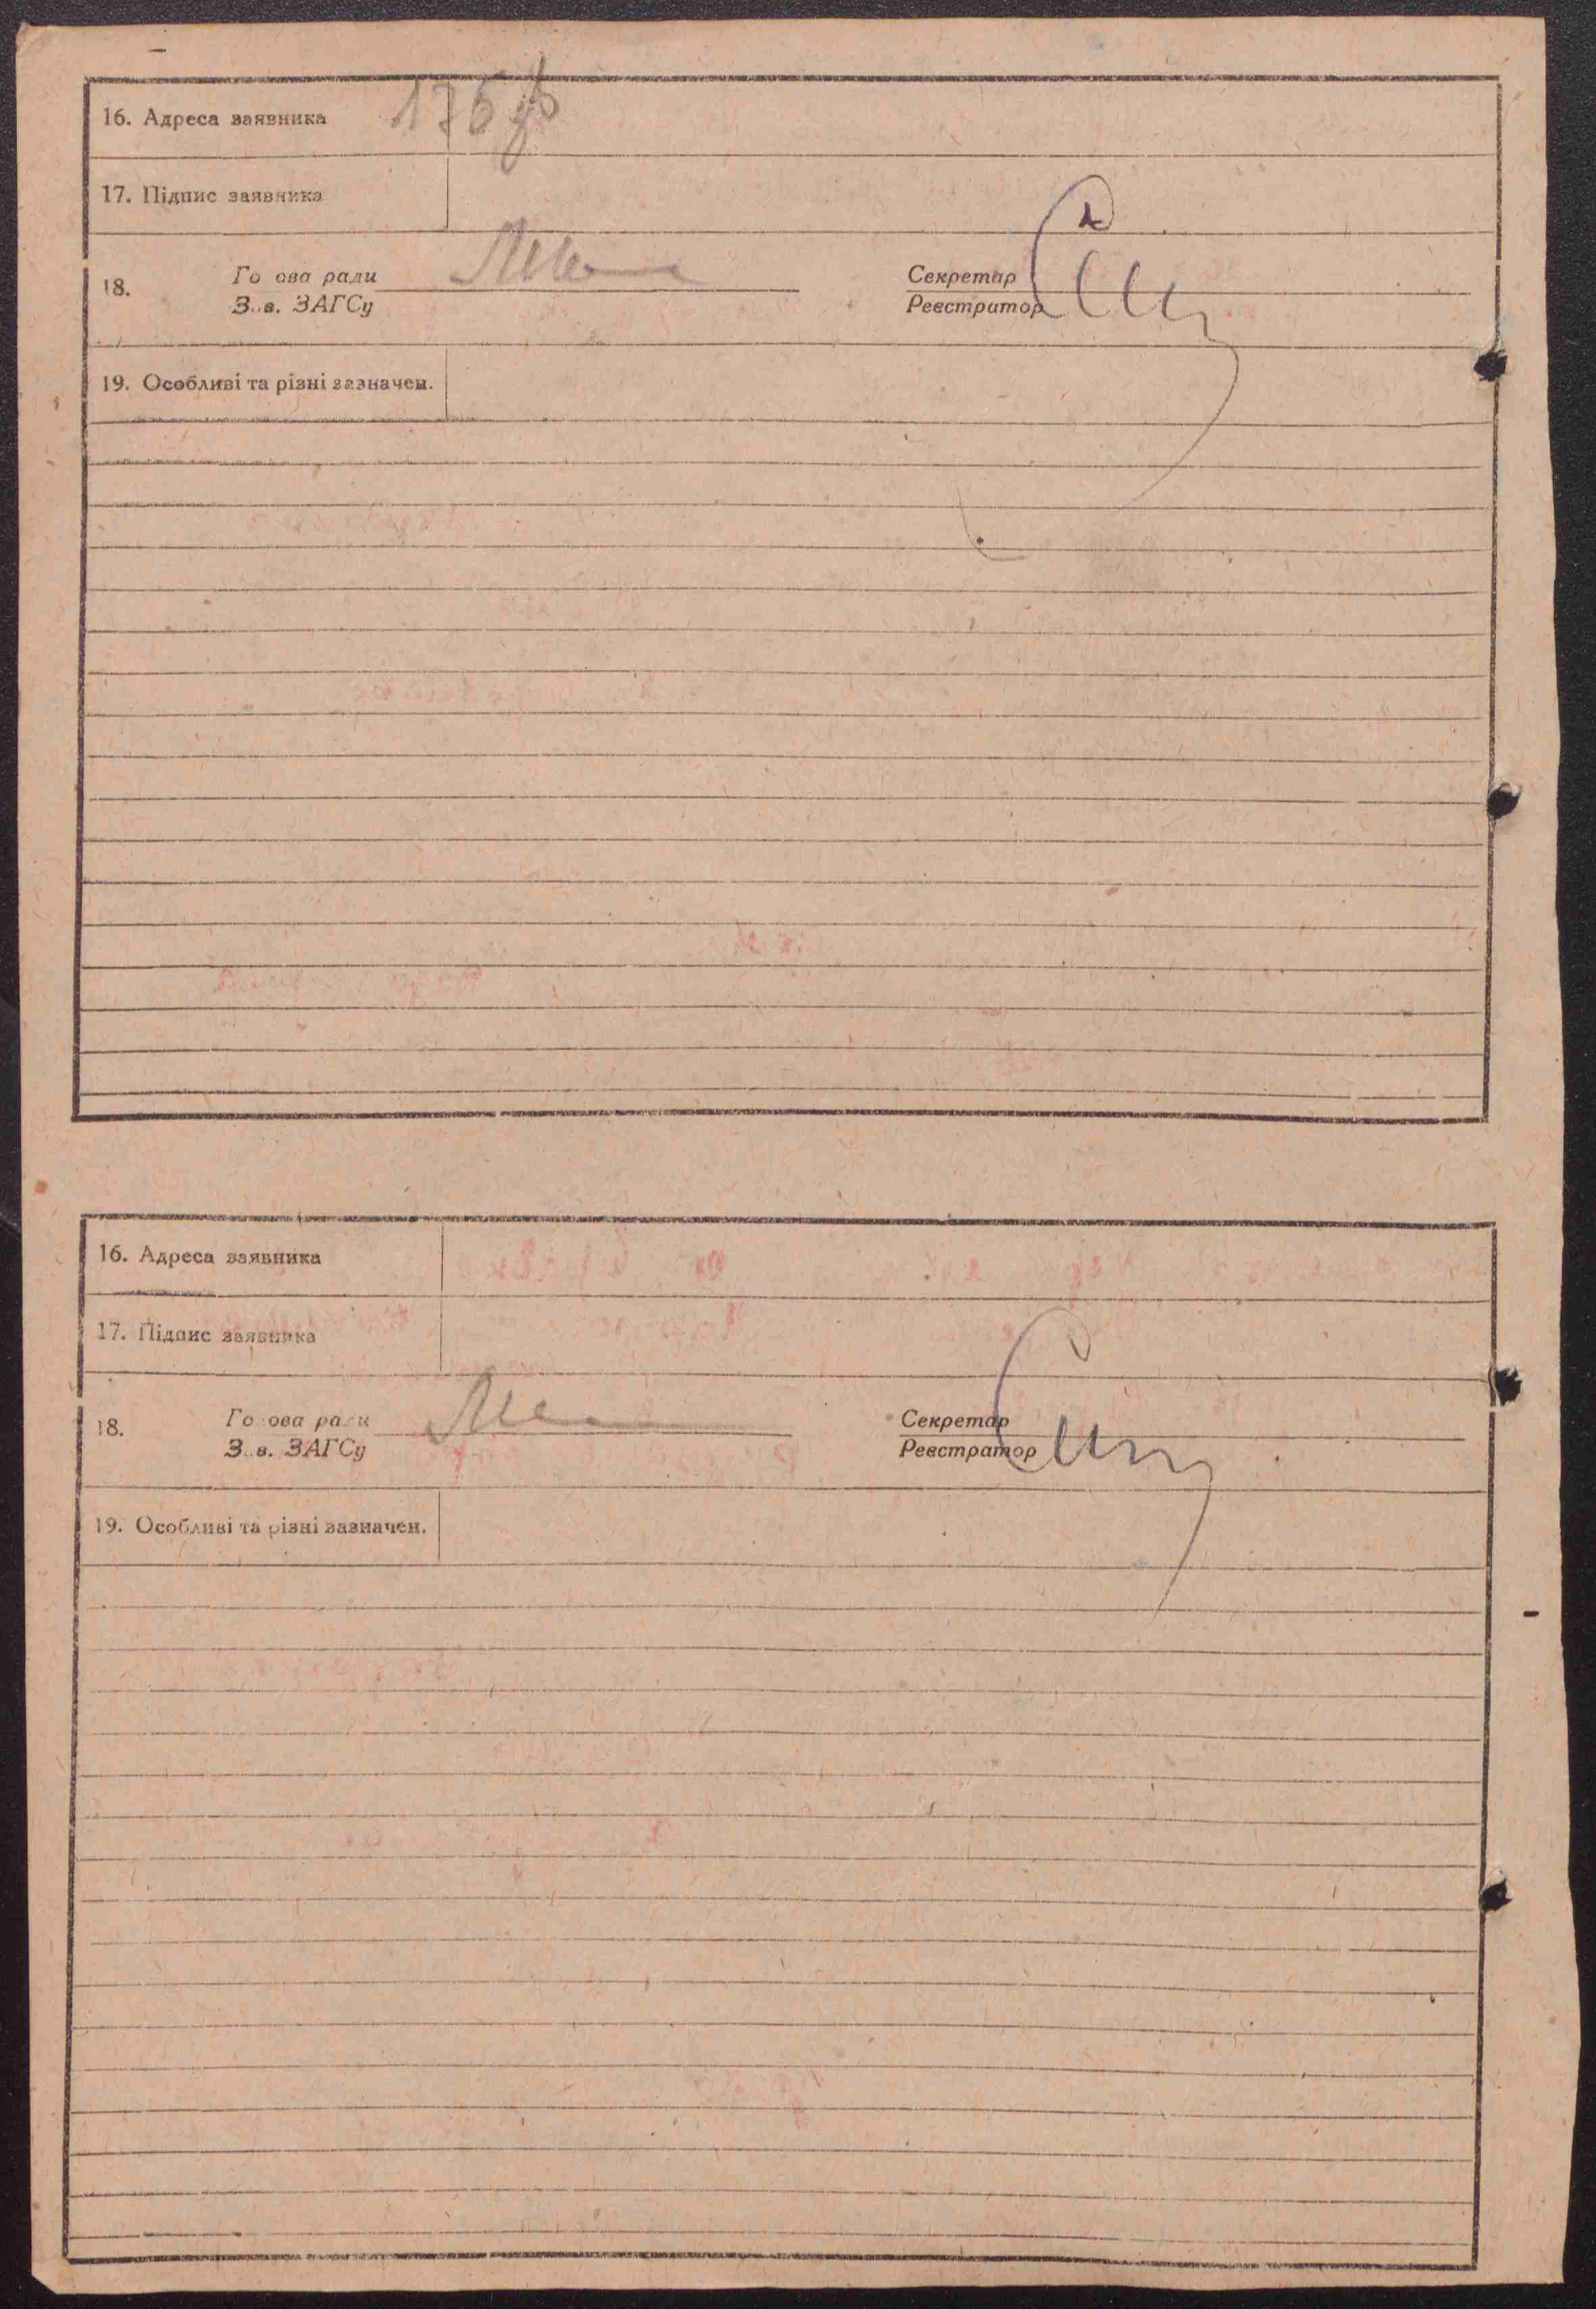 16. Адреса заявника
17. Підпис заявника
18. Го ова ради Секретар
З..в. ЗАГСу Реєстратор
19. Особливі та різні зазначен.
16. Адреса заявника
17. Підпис заявника
18. Го ова ради Секретар
З..в. ЗАГСу Реєстратор
19. Особливі та різні зазначен.